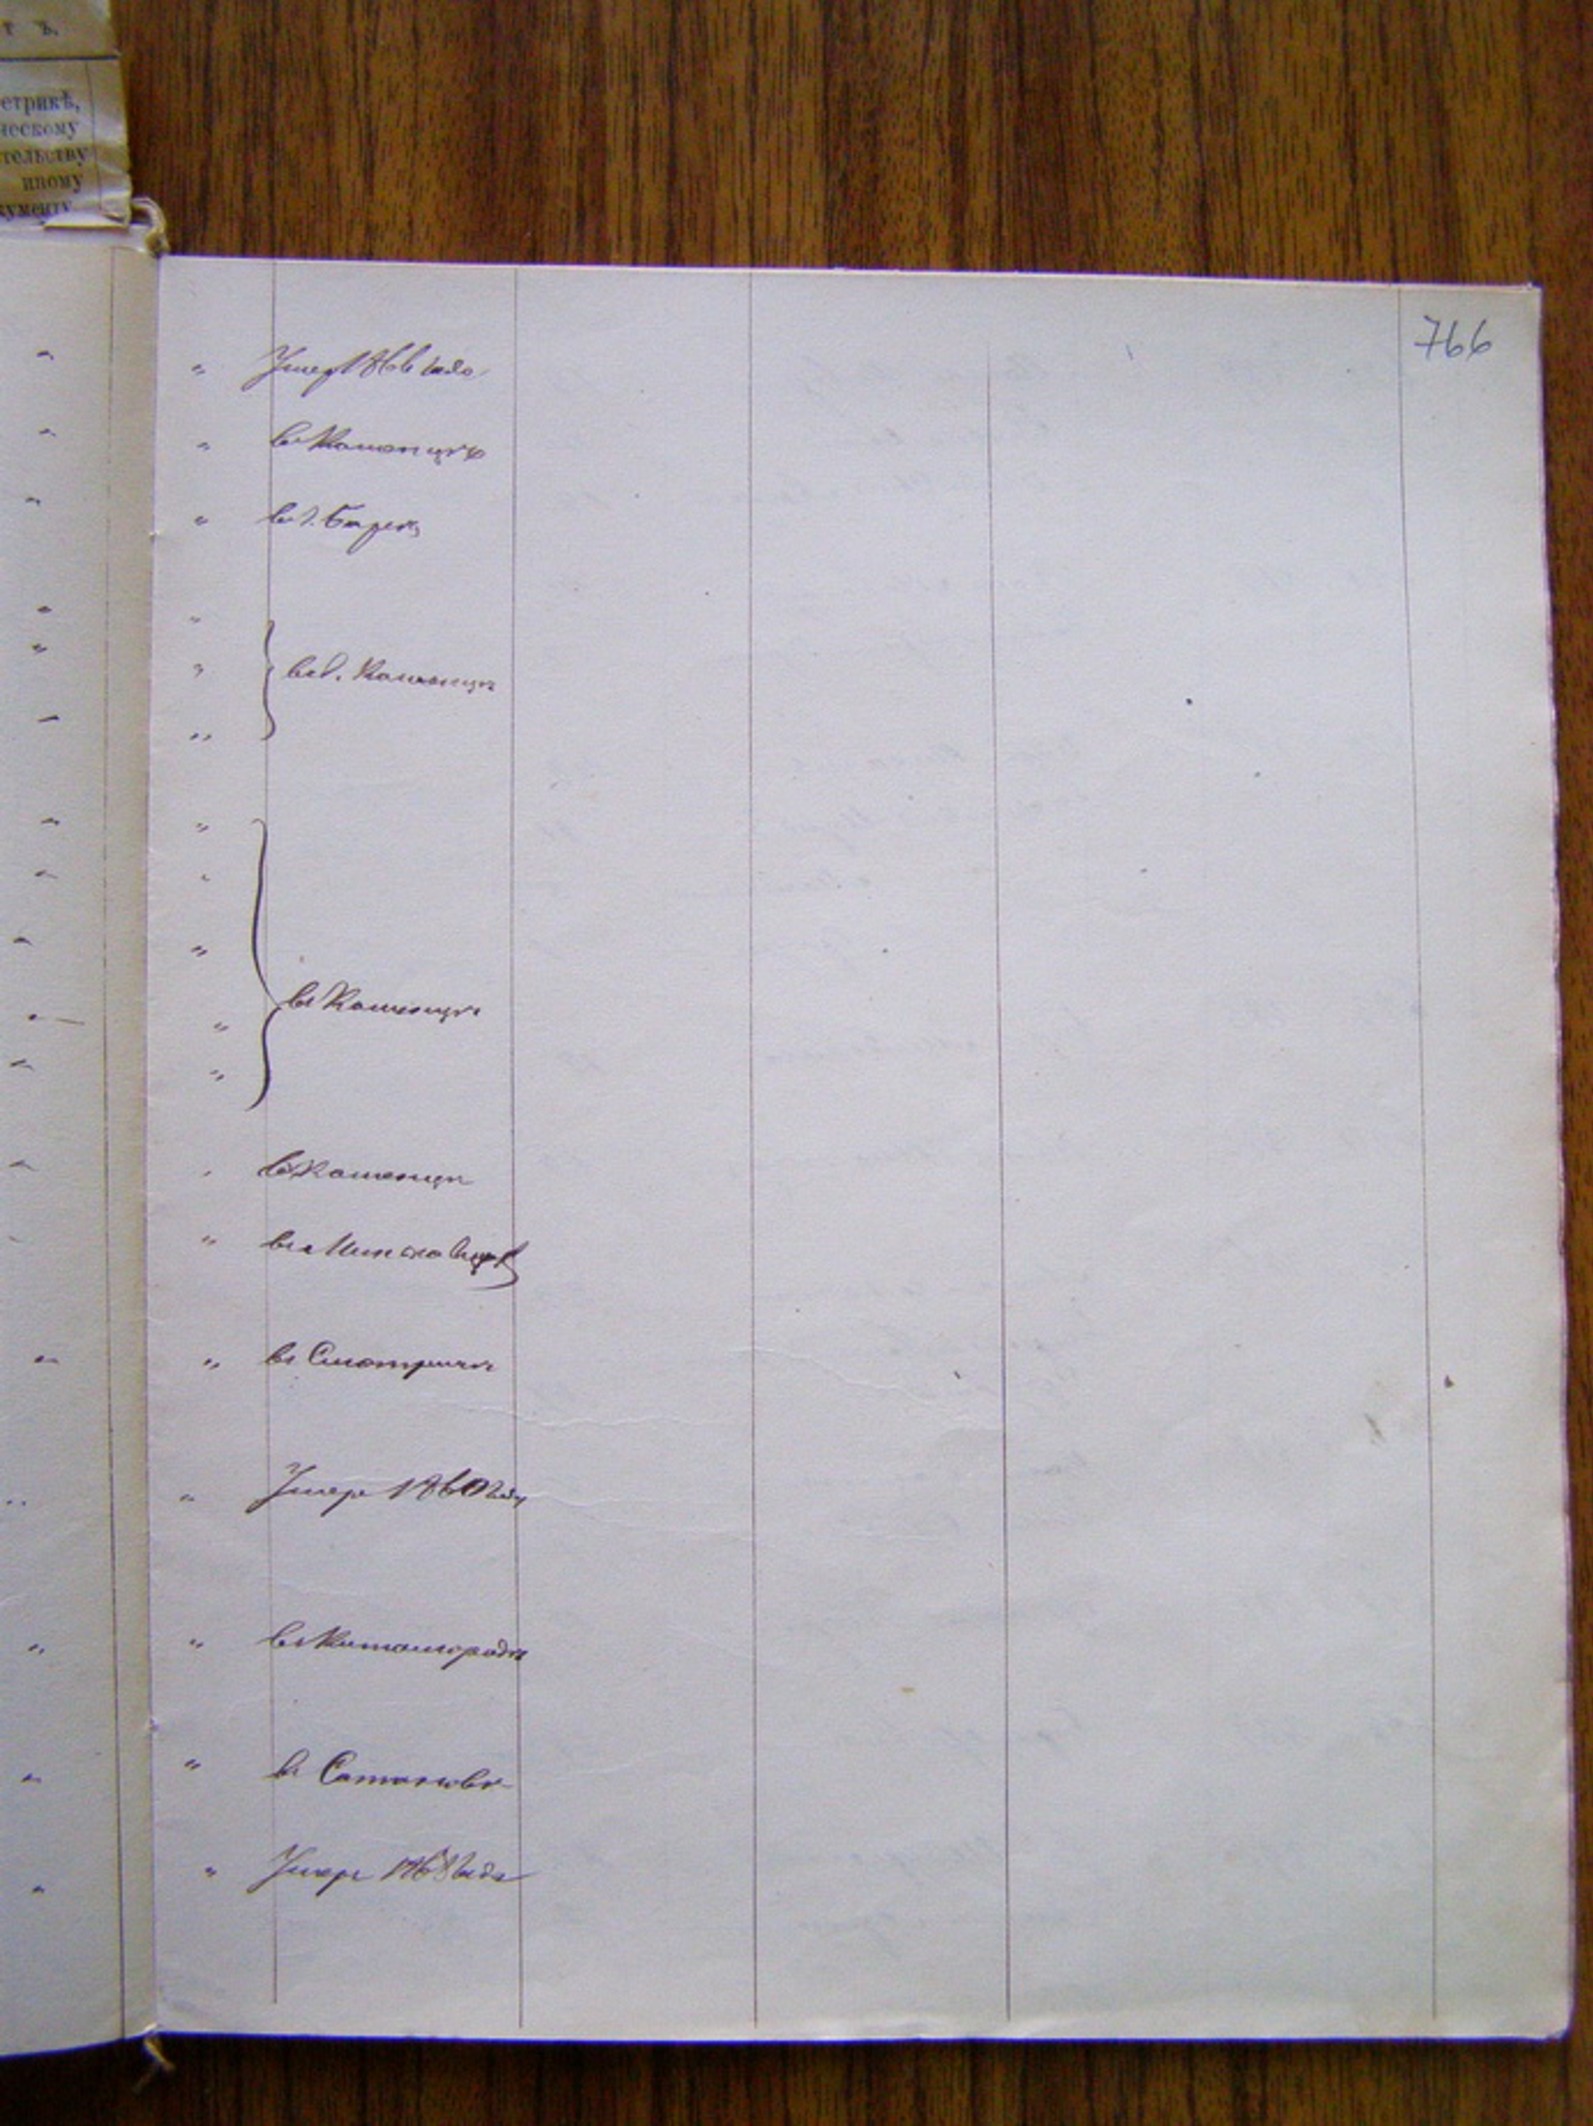 т ъ.
етрикѣ,
ческому
тельству
иному
кументу.
766
" Умер 1866 года
" въ Каменцѣ
" въ г. Барѣ
"
" въ г. Каменцѣ
"
"
"
"
" въ Каменцѣ
"
" въ Каменцѣ
" въ Миньковцахъ
" въ Смотричѣ
" Умеръ 1860 году
" въ Китайгородѣ
" въ Сатановѣ
" Умеръ 1868 года